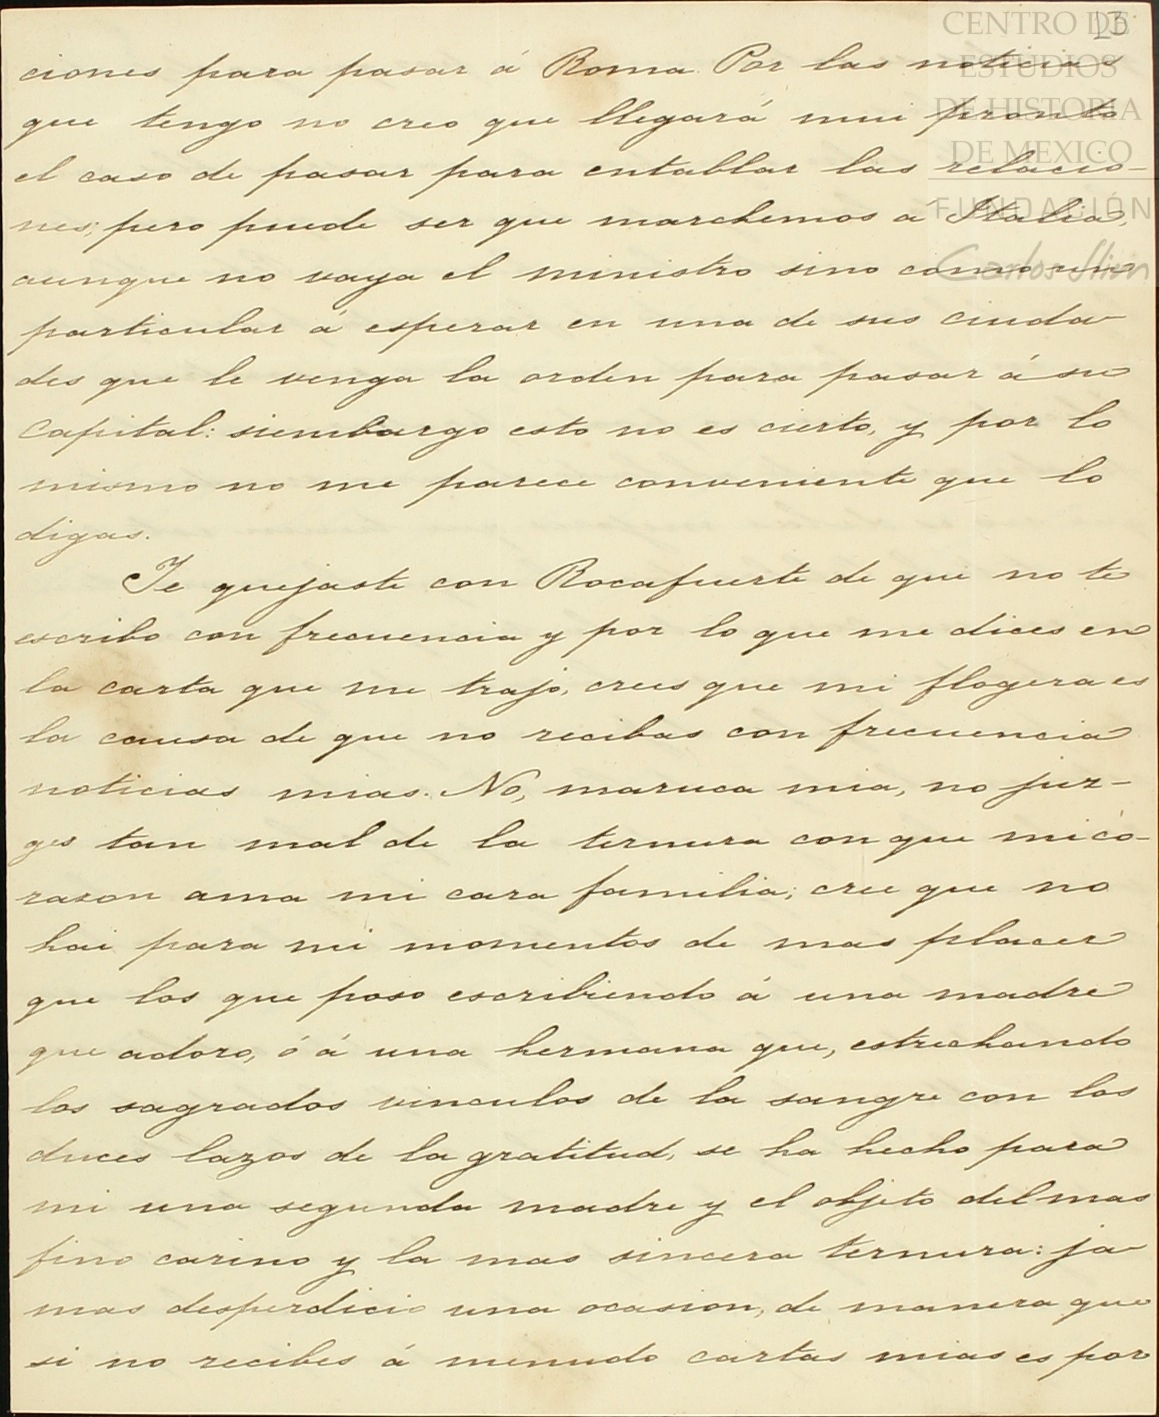 13
CENTRO DE
ESTUDIOS
DE HISTORIA
DE MEXICO
FUNDACIÓN
Carlos Slim
ciones para pasar á Roma. Por las noticias
que tengo no creo que llegará mui pronto
el caso de pasar para entablar las relacio-
nes; pero puede ser que marchemos a Italia,
aunque no vaya el ministro sino como un
particular á esperar en una de sus ciuda-
des que le venga la orden para pasar á su
Capital: siembargo esto no es cierto, y por lo
mismo no me parece conveniente que lo
digas.
Te quejaste con Rocafuerte de que no te
escribo con frecuencia y por lo que me dices en
la carta que me trajo, crees que mi flogera es
la causa de que no recibas con frecuencia
noticias mias. No, maruca mia, no juz-
ges tan mal de la ternura con que mi co-
rason ama mi cara familia; cree que no
hai para mi momentos de mas placer
que los que paso escribiendo á una madre
que adoro, ó á una hermana que, estrechando
los sagrados vinculos de la sangre con los
duces lazos de la gratitud, se ha hecho para
mi una segunda madre y el objeto del mas
fino carino y la mas sincera ternura: ja-
mas desperdicio una ocasion, de manera que
si no recibes á menudo cartas mias es por